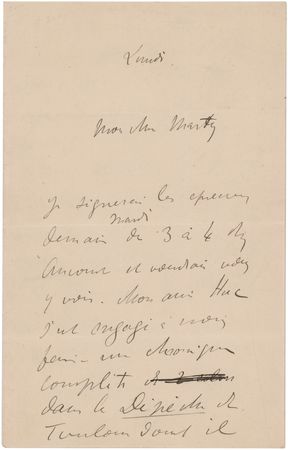 Lundi.
Mon cher Marty
Je signerai les épreuves
mardi
demain de 3 à 4 chez
Ancourt et voudrais vous
y voir. Mon ami Huc
s'est engagé à nous
faire une chronique
complète
dans la Dépêche de
Toulouse dont il